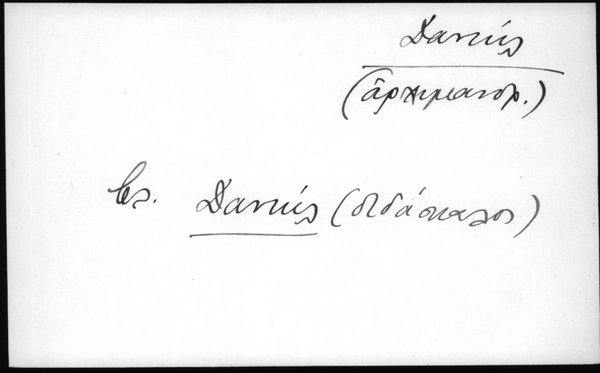 Δανιήλ
(ἀρχιμανδρ.)
βλ. Δανιήλ (διδάσκαλος)